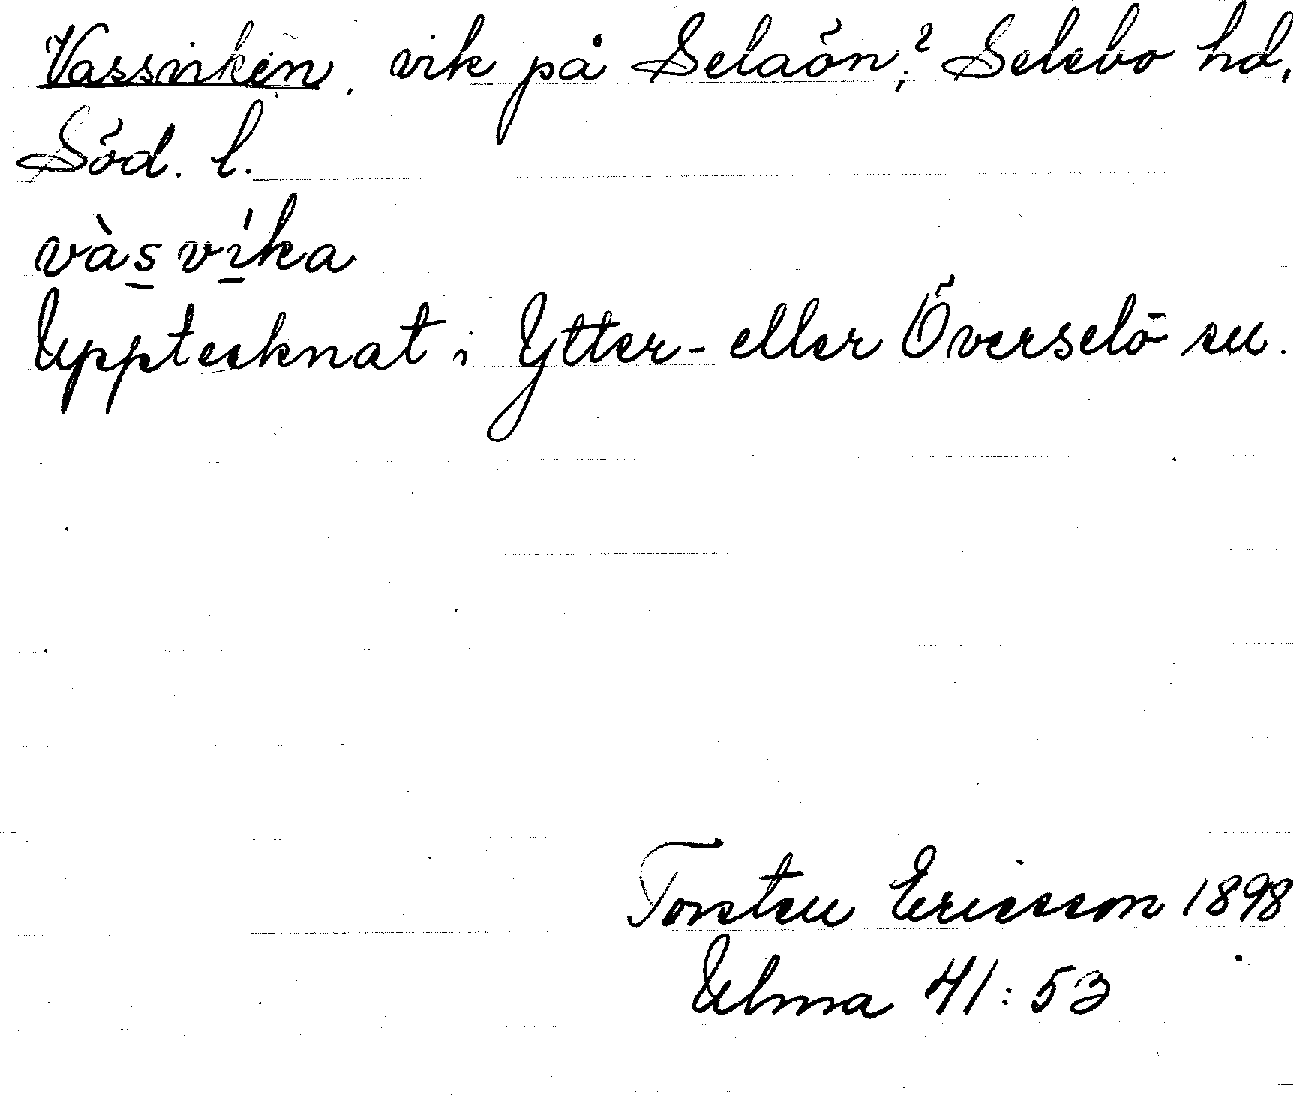 Vassviken, vik på Selaön;? Selebo hd,
Söd. l.
vàsvíka
Upptecknat i Ytter- eller Överselö sn.
Torsten Ericsson 1898
Ulma 41:53